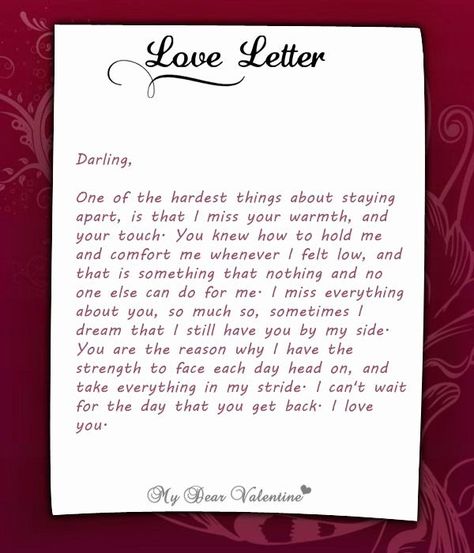 Love Letter
Darling,
One of the hardest things about staying
apart, is that I miss your warmth, and
your touch. You knew how to hold me
and comfort me whenever I felt low, and
that is something that nothing and no
one else can do for me. I miss everything
about you, so much so, sometimes I
dream that I still have you by my side.
You are the reason why I have the
strength to face each day head on, and
take everything in my stride. I can't wait
for the day that you get back. I love
you.
My Dear Valentine